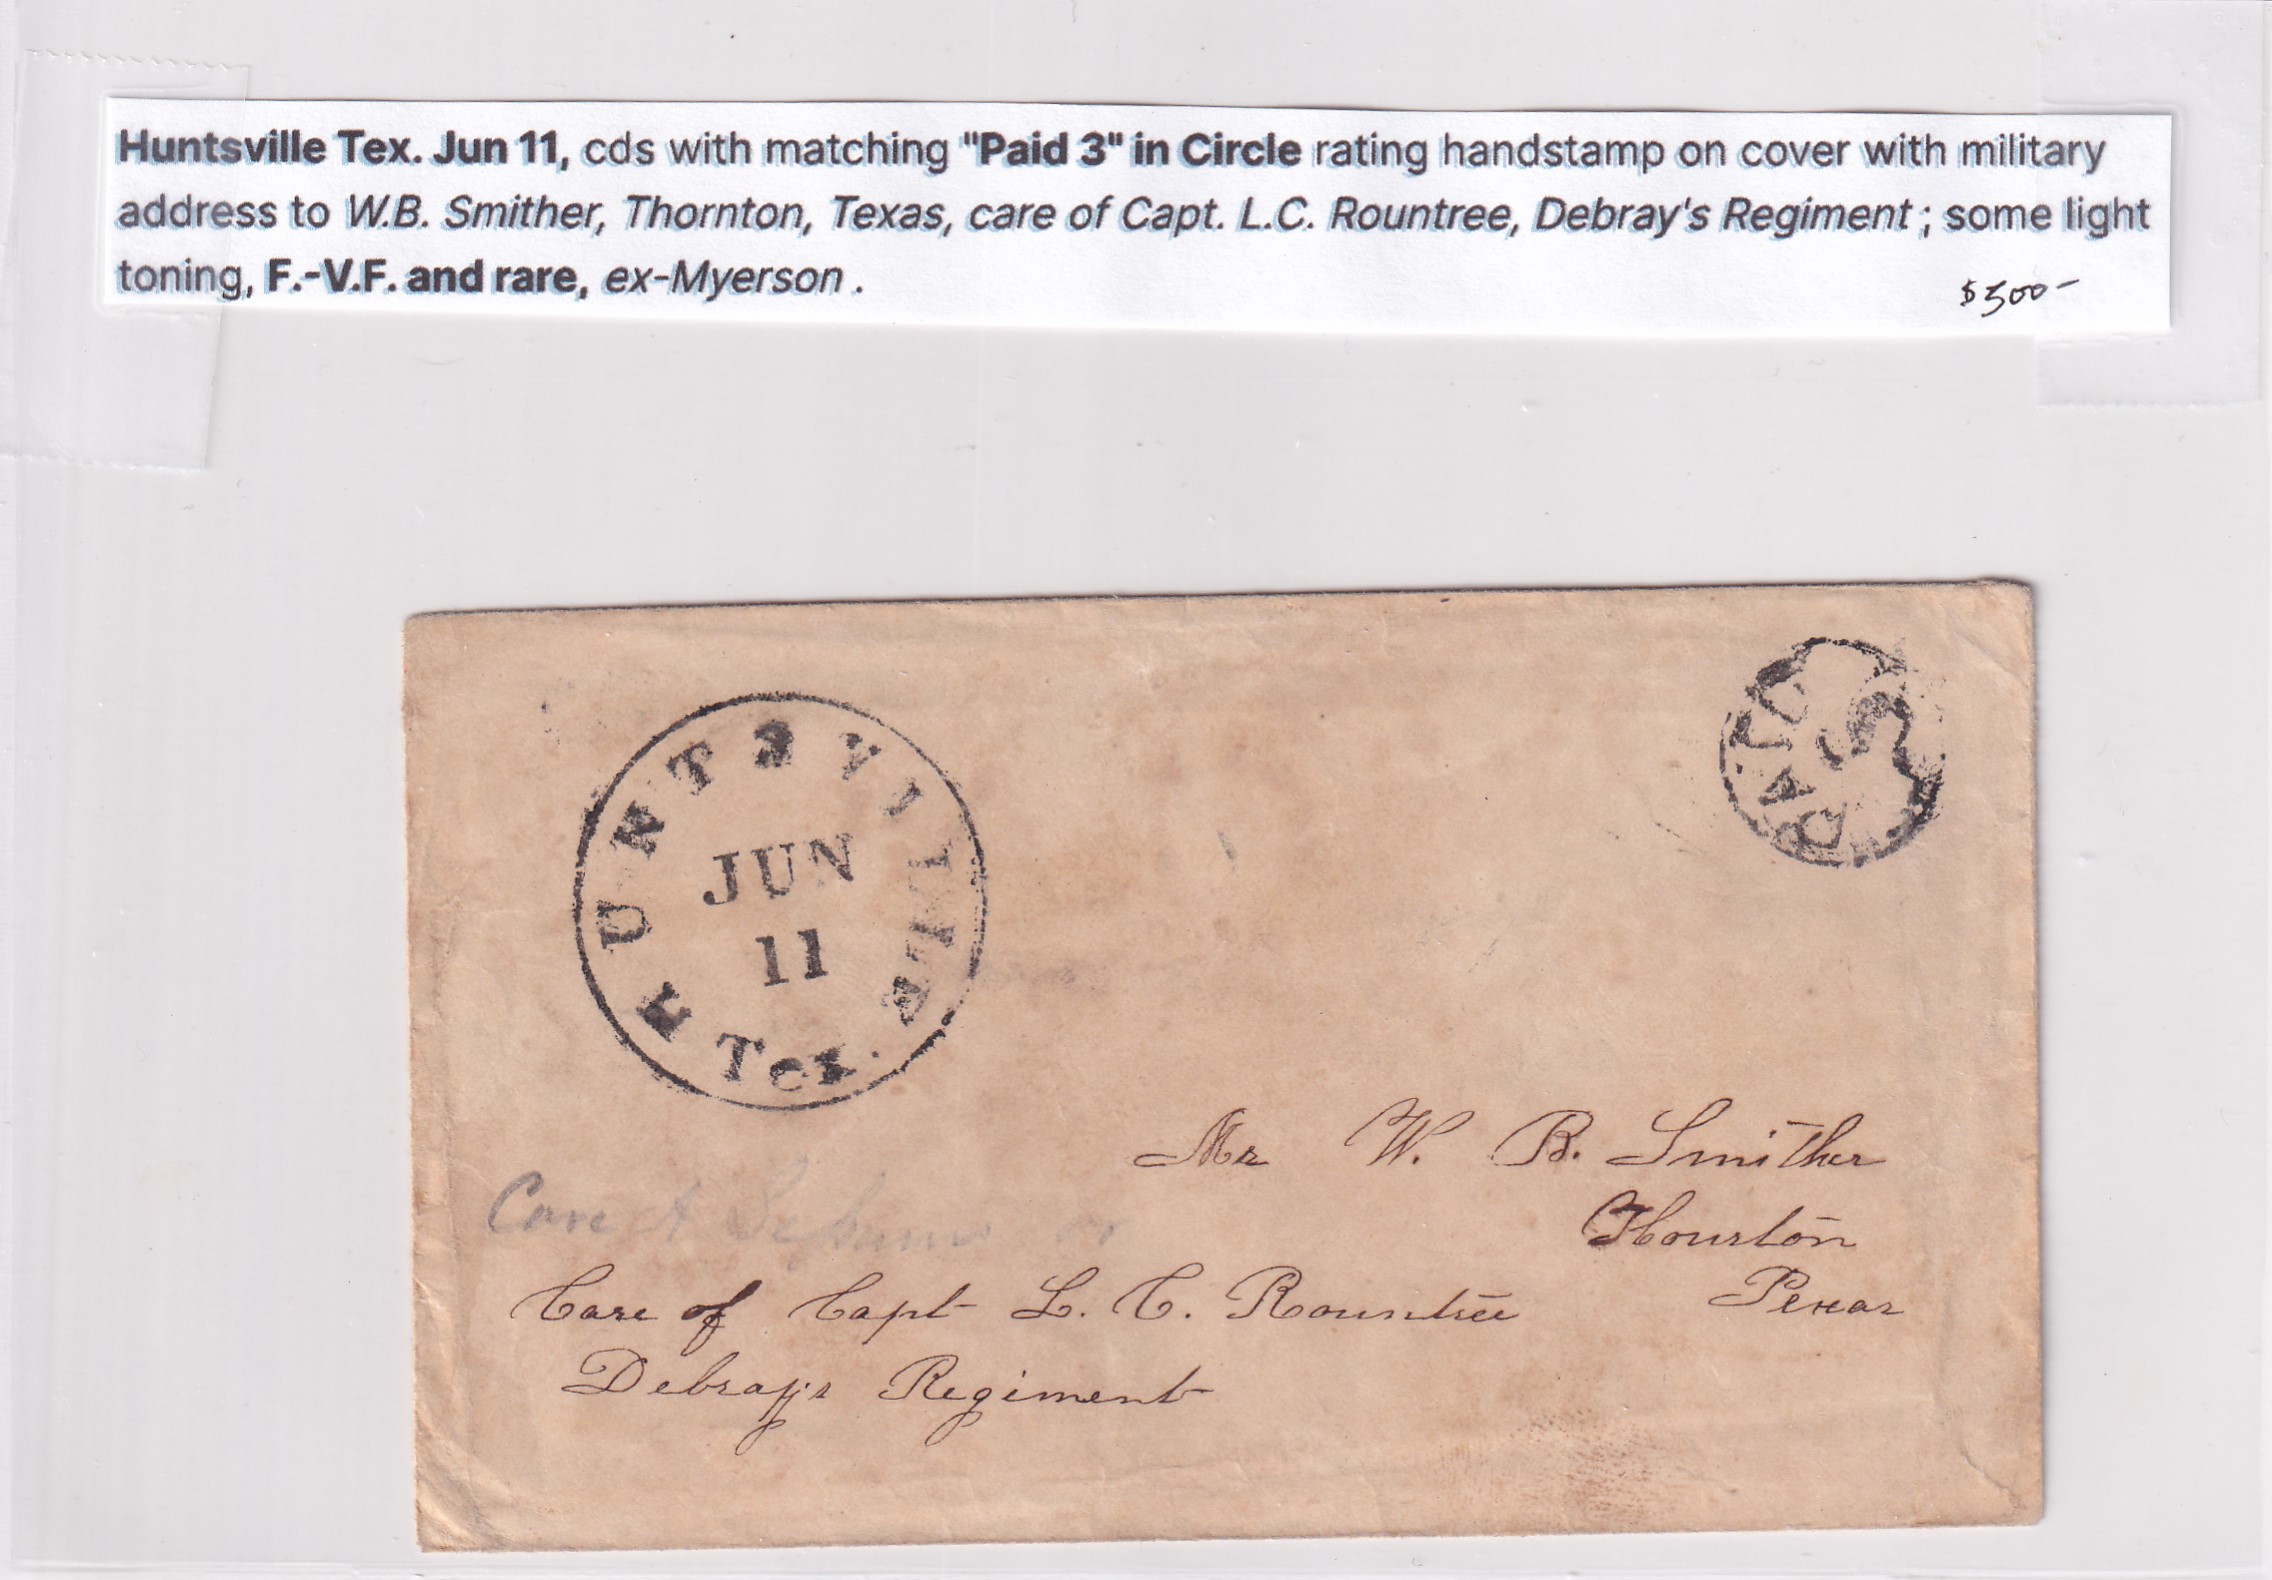 Huntsville Tex. Jun 11, cds with matching "Paid 3" in Circle rating handstamp on cover with military
address to W.B. Smither, Thornton, Texas, care of Capt. L.C. Rountree, Debray's Regiment ; some light
toning, F.-V.F. and rare, ex-Myerson .
$500-
HUNTSVILLE
JUN
11
Tex.
PAID
3
Mr W. B. Smither
Houston
Texas
Care
Care of Capt L. C. Rountree
Debray's Regiment